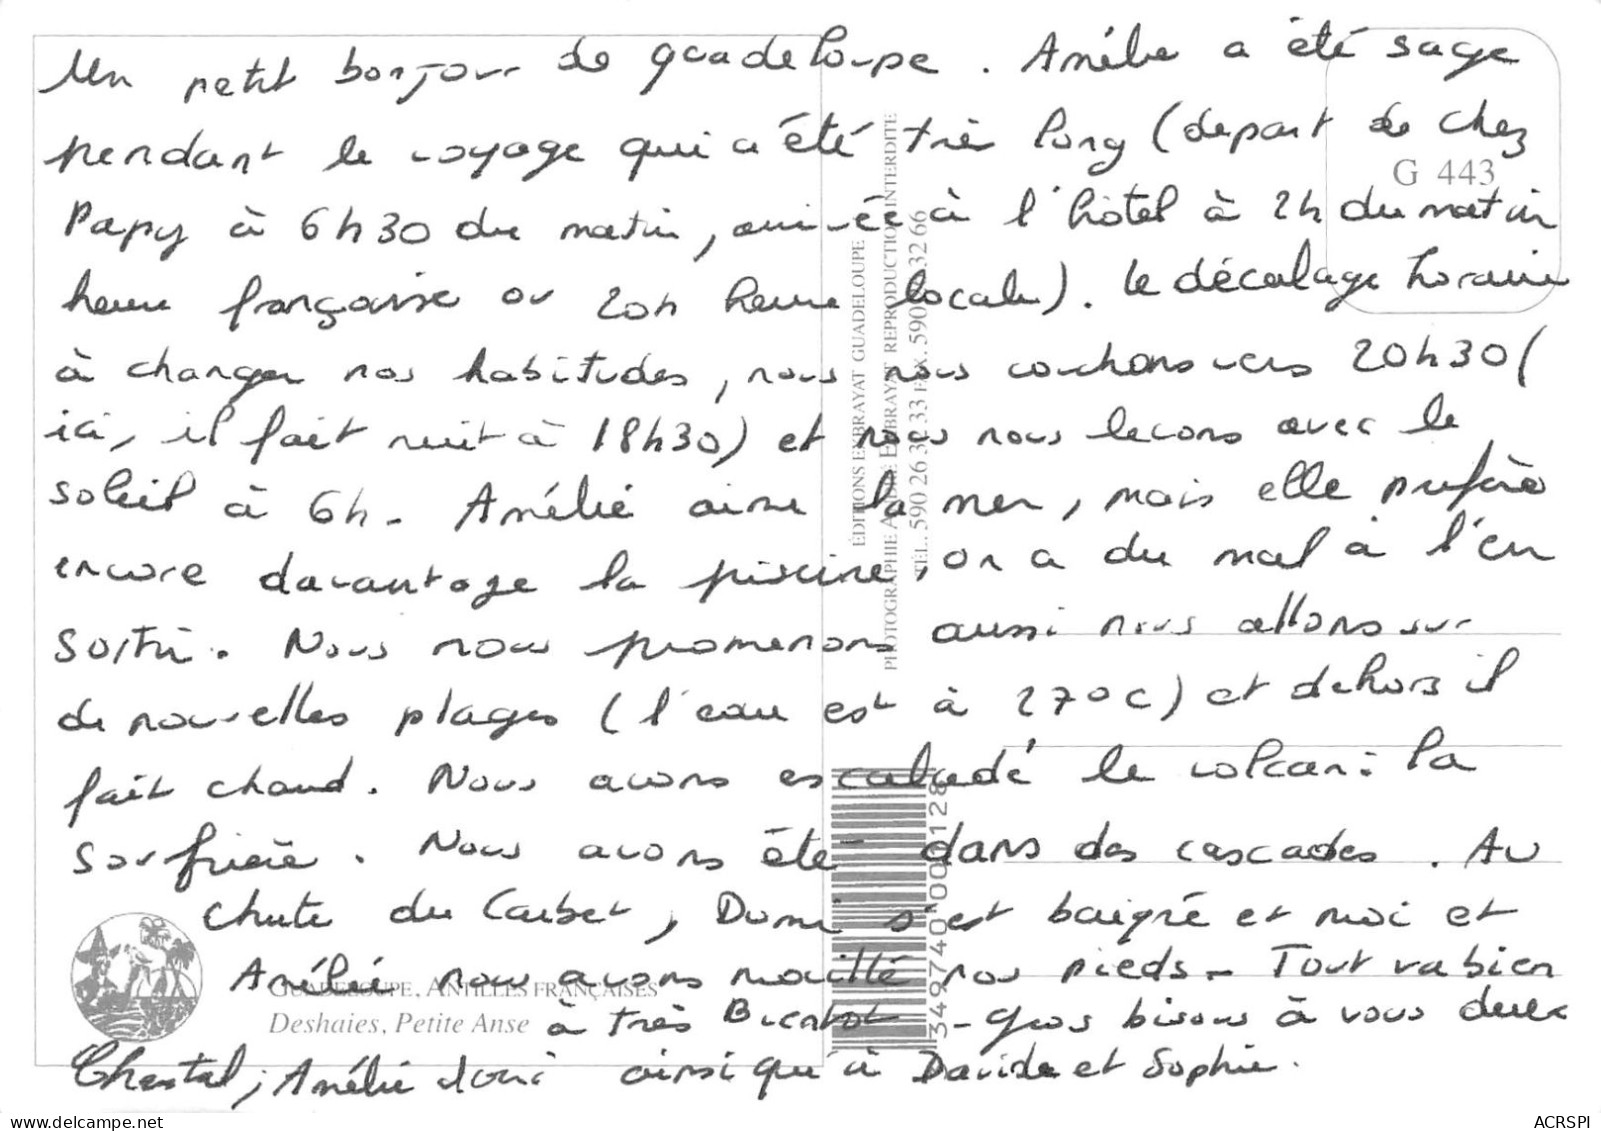 Un petit bonjour de guadeloupe. Amélie a été sage
pendant le voyage qui a été très long (depart de chez
Papy à 6h30 du matin, arrivée à l'hôtel à 2h du matin
heure française ou 20h heure locale). Le décalage horaire
à changer nos habitudes, nous nous couchons vers 20h30 (
ici, il fait nuit à 18h30) et nous nous levons avec le
soleil à 6h. Amélie aime la mer, mais elle préfère
encore davantage la piscine, on a du mal à l'en
sortir. Nous nous promenons aussi nous allons sur
de nouvelles plages (l'eau est à 27°C) et dehors il
fait chaud. Nous avons escaladé le volcan: la
Soufrière. Nous avons été dans des cascades. Au
Chute du Carbet, Domi s'est baigné et moi et
Amélie nous avons mouillé nos pieds. Tout va bien
à très Bientôt - Gros bisous à vous deux
Chantal, Amélie ainsi qu'à Davide et Sophie.
G 443
ÉDITIONS EXBRAYAT GUADELOUPE
PHOTOGRAPHIE EXBRAYAT REPRODUCTION INTERDITE
TÉL. 590 26 32 33 FAX. 590 32 66
3 49740 000128
GUADELOUPE, ANTILLES FRANÇAISES
Deshaies, Petite Anse
ACRSPI